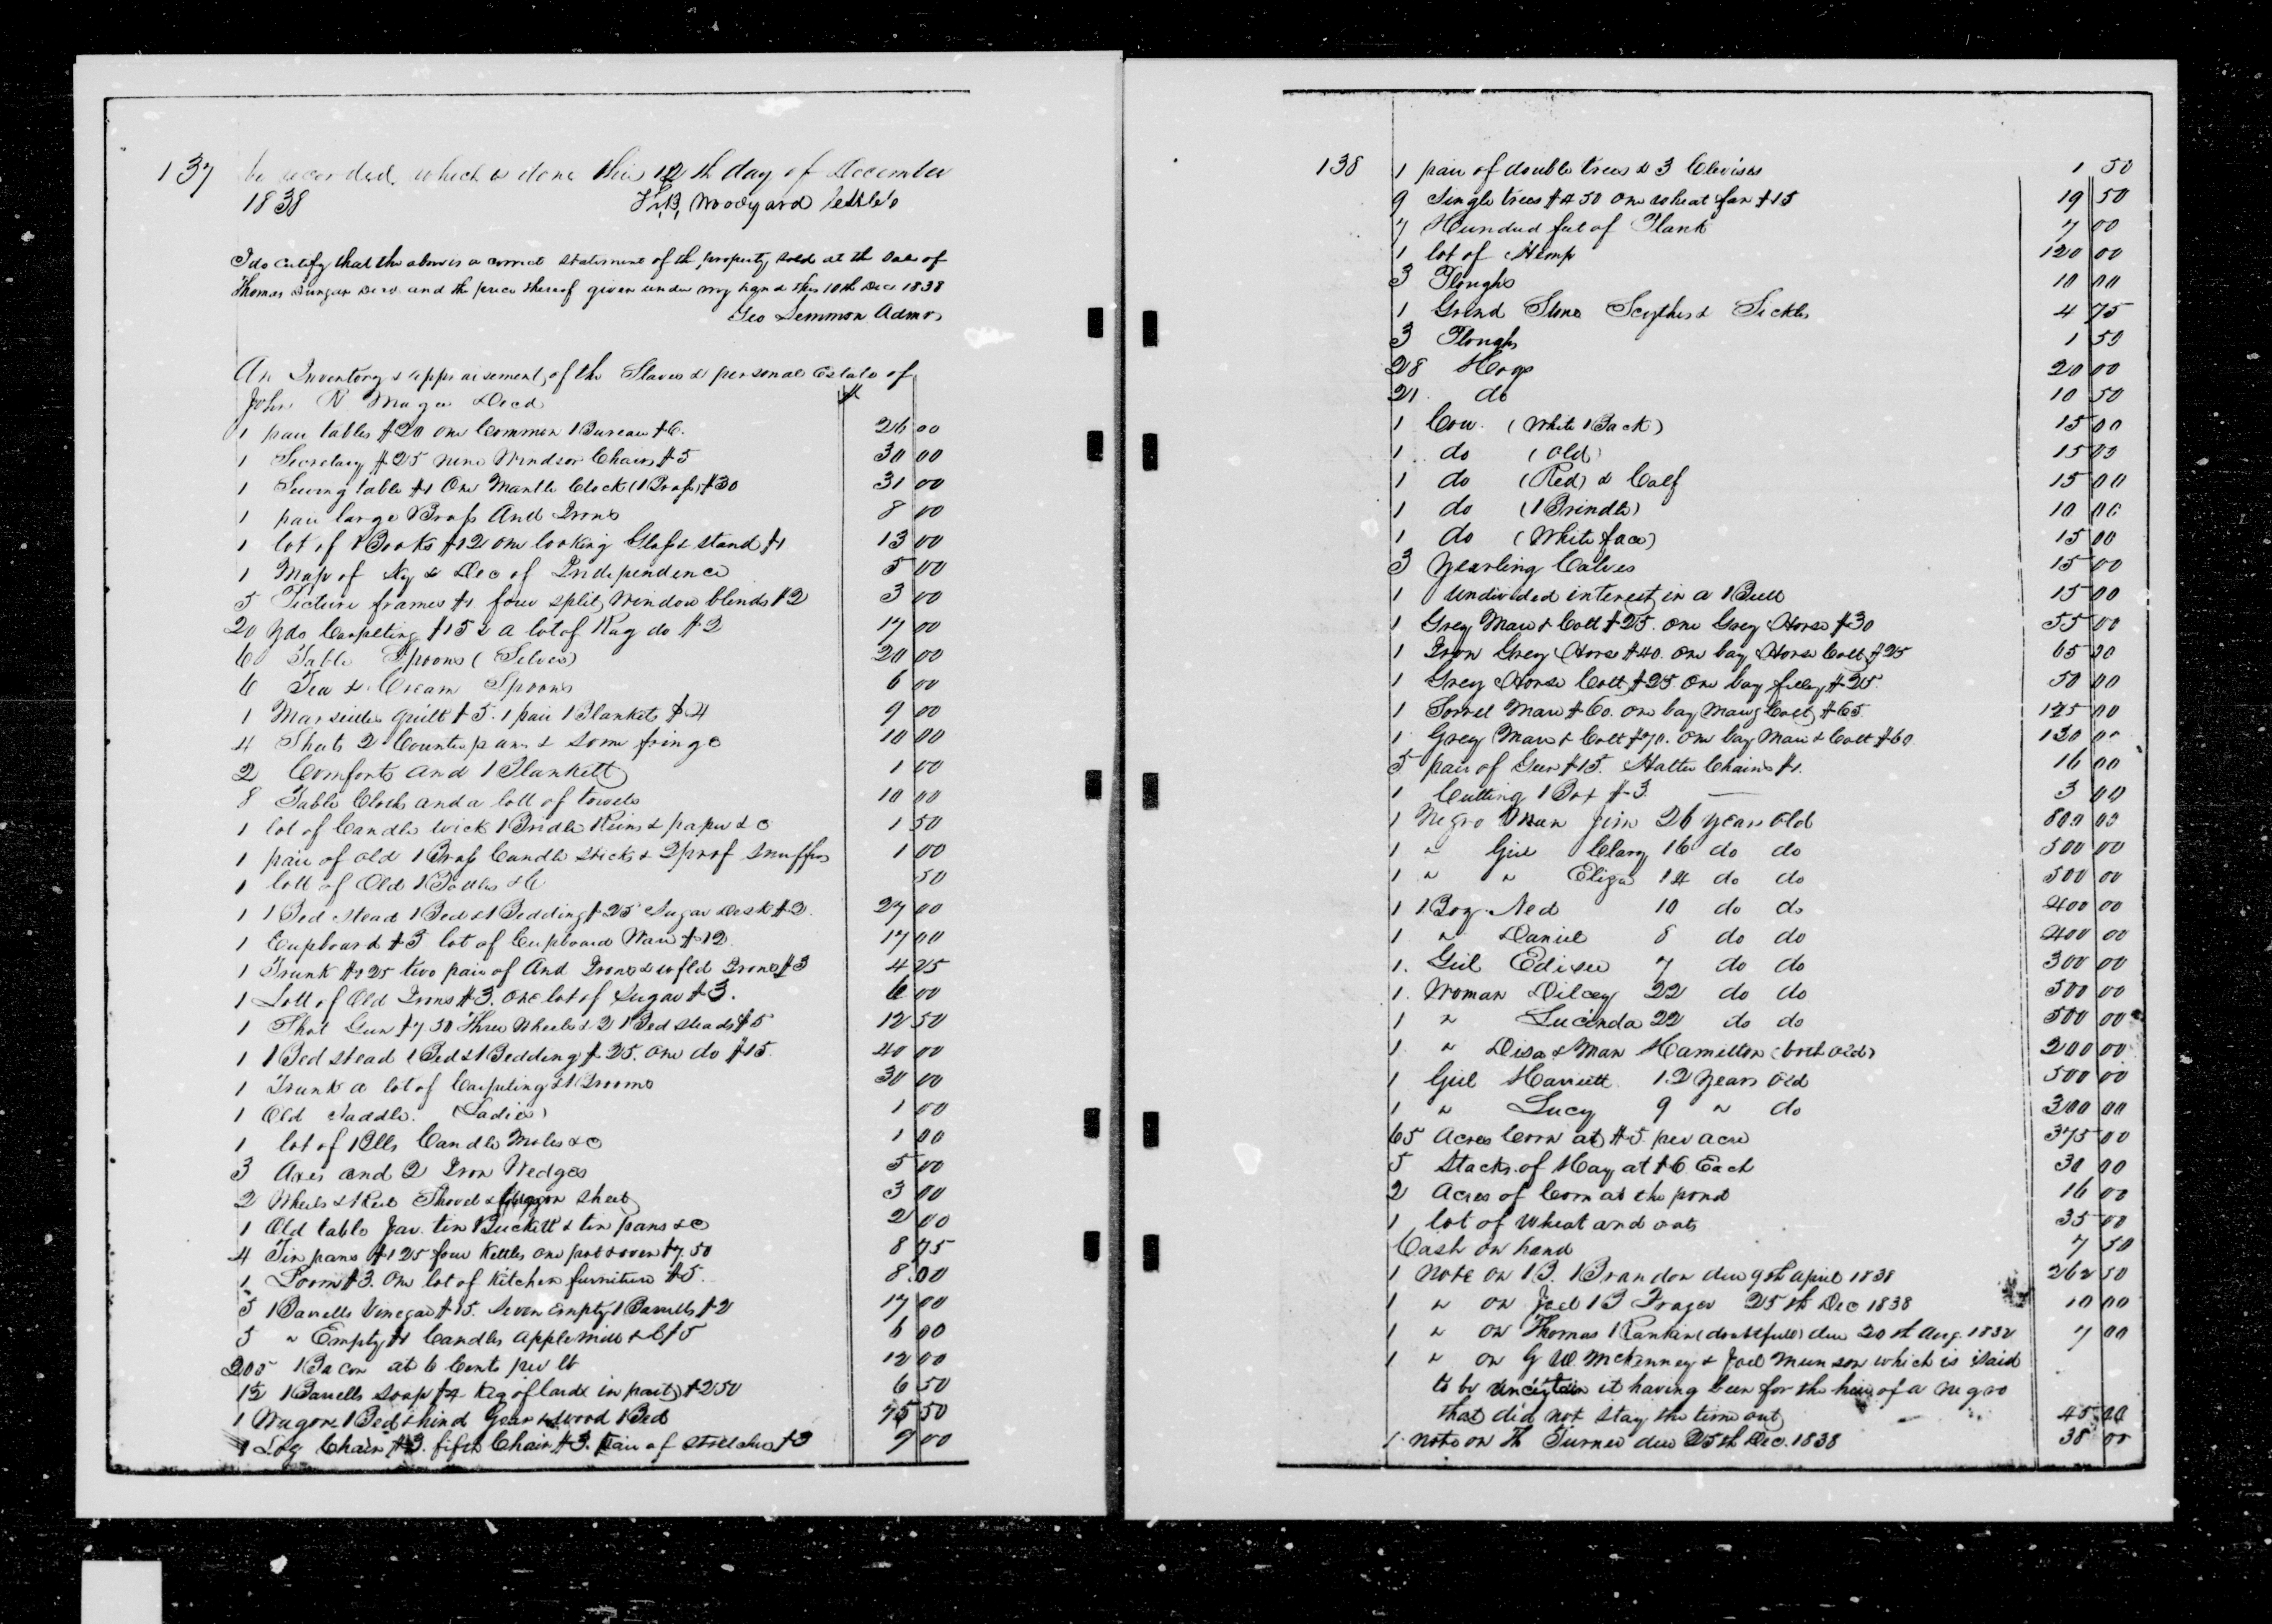 137 be recorded, which is done this 12th day of December
1838 H. B. Woodyard
I do certify that the above is a correct statement of the property sold at the sale of
Thomas Dungan Decd. and the price thereof given under my hand this 10th Dec 1838
Geo Lemmon Admr
An Inventory & appraisement of the Slaves & personal Estate of
John N Magee Decd $
1 pair tables $20 one Common Bureau $6. 26 00
1 Secretary $25 nine Windsor Chairs $5 30 00
1 Sewing table $1 One Mantle Clock (Brass) $30 31 00
1 pair large Brass And Irons 8 00
1 lot of Books $12 one looking Glass & stand $1 13 00
1 Map of Ky & Dec of Independence 5 00
5 Picture frames $1 four split Window blinds $2 3 00
20 yds Carpeting $15 & a lot of Rag do $2 17 00
6 Table Spoons (Silver) 20 00
6 Tea & Cream Spoons 6 00
1 Marseilles quilt $5. 1 pair Blankets $4 9 00
4 Sheets 2 Counterpans & some fringe 10 00
2 Comforts and 1 Blankett 1 00
8 Table Cloths and a lott of towels 10 00
1 lot of Candle wick Bridle Reins & paper &c 1 50
1 pair of old Brass Candle sticks & 2 pr of snuffers 1 00
1 lott of Old Bottles &c 50
1 Bed stead Bed & Bedding $25 Sugar Desk $2. 27 00
1 Cupboard $5 lot of Cupboard Ware $12. 17 00
1 Trunk $1 25 two pair of And Irons & Irons $3 4 25
1 Lott of Old Irons $3. one lot of Sugar $3. 6 00
1 Shot Gun $7 50 Three Wheels & 2 Bed steads $5 12 50
1 Bed stead Bed & Bedding $25. one do $15. 40 00
1 Trunk a lot of Carpeting & Brooms 30 00
1 Old Saddle. (Ladies) 1 00
1 lot of Bells Candle Moles &c 1 00
3 Axes and 2 Iron Wedges 5 00
2 Wheels & Reel Shovel & sheet 3 00
1 Old table Jar. tin Buckett & tin pans &c 2 00
4 Tin pans $1 25 four Kettles one pot & oven $7.50 8 75
1 Loom $3. One lot of Kitchen furniture $5. 8.00
5 Barrells Vinegar $15. Seven empty Barrells $2 17 00
5 " Empty $1 Candles Apple Mill &c $5 6 00
205 Bacon at 6 Cents per lb 12 00
1½ Barrells soap $4 Keg of lard (in part) $2 50 6 50
1 Wagon Bed & hind Gear & wood Bed 75 50
1 Log Chain $3. fifth Chain $3. Pair of Stretchers $3 9 00
138 1 pair of double trees & 3 Clevises 1 50
9 Single trees $4 50 One wheat fan $15 19 50
7 Hundred feet of Plank 7 00
1 lot of Hemp 120 00
3 Ploughs 10 00
1 Grind Stone Scythes & Sickles 4 75
3 Ploughs 1 50
28 Hogs 20 00
21 do 10 50
1 Cow (White Back) 15 00
1 do (Old) 15 00
1 do (Red) & Calf 15 00
1 do (Brindle) 10 00
1 do (White face) 15 00
3 Yearling Calves 15 00
1 Undivided interest in a Bull 15 00
1 Grey Mare & Colt $25. one Grey Horse $30 55 00
1 Iron Grey Horse $40. One bay Horse Colt $25 65 00
1 Grey Horse Colt $25. One bay filley $25. 50 00
1 Sorrel Mare $60. One bay Mare & Colt $65. 125 00
1 Grey Mare & Colt $70. One bay Mare & Colt $60. 130 00
5 pair of Gear $15. Halter Chains $1. 16 00
1 Cutting Box $3. 3 00
1 Negro Man Jim 26 years Old 800 00
1 " Girl Clary 16 do do 500 00
1 " " Eliza 14 do do 500 00
1 Boy. Ned 10 do do 400 00
1 " Daniel 8 do do 400 00
1. Girl 7 do do 300 00
1. Woman Dilcey 22 do do 500 00
1 " Lucinda 22 do do 500 00
1 " Disa & Man Hamilton (both old) 200 00
1 Girl Harriett 12 Years Old 500 00
1 " Lucy 9 " do 300 00
65 Acres Corn at $5. per acre 375 00
5 Stacks of Hay at $6 Each 30 00
2 Acres of Corn at the pond 16 00
1 lot of wheat and oats 35 00
Cash on hand 7 50
1 Note on B. Brandon due 9th April 1838 262 50
1 " on Joel B Frazer 25th Dec 1838 10 00
1 " on Thomas Rankin (doubtfull) due 20th Aug. 1832 7 00
1 " on G W. McKenney & Joel Munson which is said
to be uncertain it having been for the hire of a negro
that did not stay the time out 45 00
1 note on Th Turner due 25th Dec. 1838 38 00